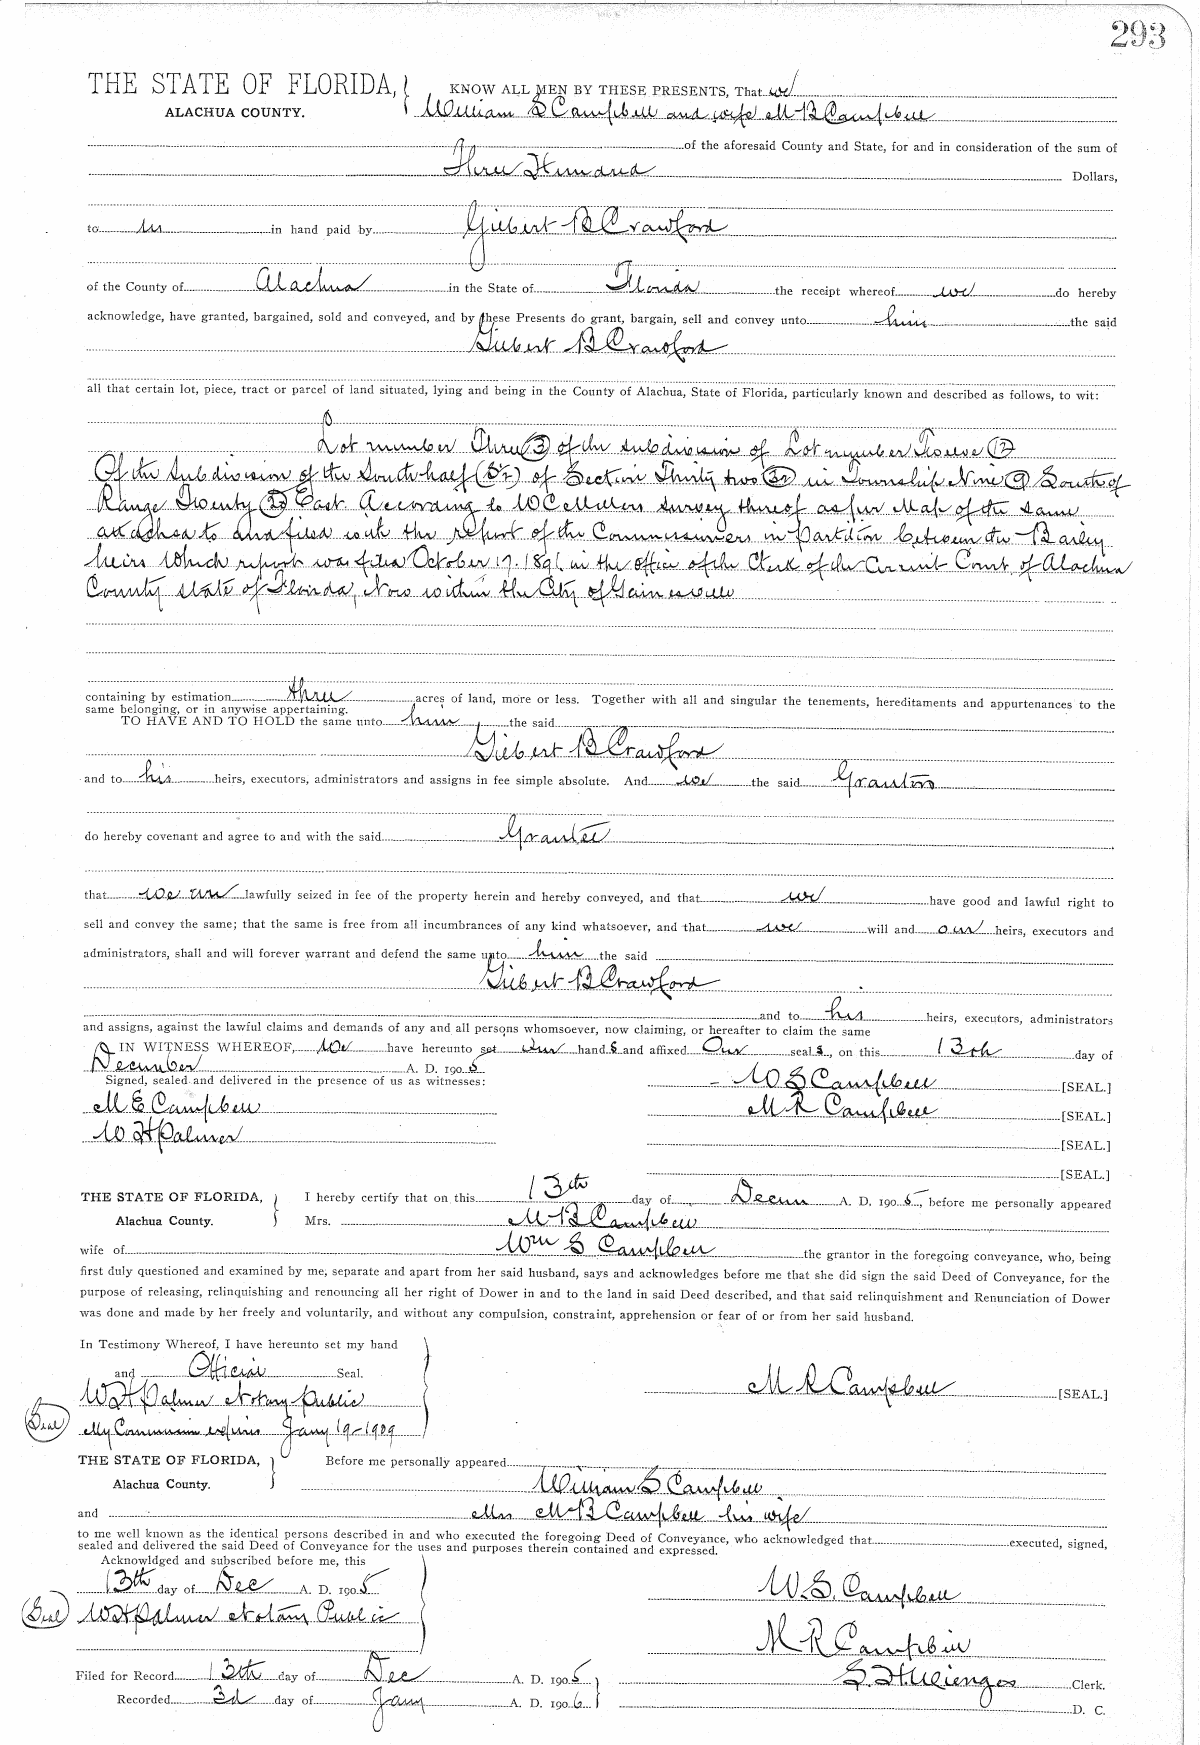 293
THE STATE OF FLORIDA, KNOW ALL MEN BY THESE PRESENTS, That we
ALACHUA COUNTY. William S Campbell and wife M B Campbell
of the aforesaid County and State, for and in consideration of the sum of
Three Hundred Dollars,
to us in hand paid by Gilbert B Crawford
of the County of Alachua in the State of Florida the receipt whereof we do hereby
acknowledge, have granted, bargained, sold and conveyed, and by these Presents do grant, bargain, sell and convey unto him the said
Gilbert B Crawford
all that certain lot, piece, tract or parcel of land situated, lying and being in the County of Alachua, State of Florida, particularly known and described as follows, to wit:
Lot number Three (3) of the subdivision of Lot number Twelve (12)
Of the Subdivision of the South half (S½) of Section Thirty two (32) in Township Nine (9) South of
Range Twenty (20) East According to W C survey thereof as per Map of the same
attached to and filed with the report of the Commissioners in Partition between the Bailey
heirs Which report was filed October 17. 1891 in the office of the Clerk of the Circuit Court of Alachua
County State of Florida, Now within the City of Gainesville
containing by estimation three acres of land, more or less. Together with all and singular the tenements, hereditaments and appurtenances to the
same belonging, or in anywise appertaining.
TO HAVE AND TO HOLD the same unto him, the said
Gilbert B Crawford
and to his heirs, executors, administrators and assigns in fee simple absolute. And we the said Grantors
do hereby covenant and agree to and with the said Grantee
that we are lawfully seized in fee of the property herein and hereby conveyed, and that we have good and lawful right to
sell and convey the same; that the same is free from all incumbrances of any kind whatsoever, and that we will and our heirs, executors and
administrators, shall and will forever warrant and defend the same unto him the said
Gilbert B Crawford
and to his heirs, executors, administrators
and assigns, against the lawful claims and demands of any and all persons whomsoever, now claiming, or hereafter to claim the same
IN WITNESS WHEREOF, We have hereunto set our hands and affixed Our seals, on this 13th day of
December A. D. 1905
Signed, sealed and delivered in the presence of us as witnesses: W S Campbell [SEAL.]
M E Campbell M R Campbell [SEAL.]
W H Palmer [SEAL.]
[SEAL.]
THE STATE OF FLORIDA, I hereby certify that on this 13th day of Decem A. D. 1905, before me personally appeared
Alachua County. Mrs. M B Campbell
wife of Wm S Campbell the grantor in the foregoing conveyance, who, being
first duly questioned and examined by me, separate and apart from her said husband, says and acknowledges before me that she did sign the said Deed of Conveyance, for the
purpose of releasing, relinquishing and renouncing all her right of Dower in and to the land in said Deed described, and that said relinquishment and Renunciation of Dower
was done and made by her freely and voluntarily, and without any compulsion, constraint, apprehension or fear of or from her said husband.
In Testimony Whereof, I have hereunto set my hand
and Official Seal.
W H Palmer Notary Public M R Campbell [SEAL.]
(Seal) My Commission expires Jany 19-1909
THE STATE OF FLORIDA, Before me personally appeared
Alachua County. William S Campbell
and Mrs M B Campbell his wife
to me well known as the identical persons described in and who executed the foregoing Deed of Conveyance, who acknowledged that executed, signed,
sealed and delivered the said Deed of Conveyance for the uses and purposes therein contained and expressed.
Acknowldged and subscribed before me, this
13th day of Dec A. D. 1905 W. S. Campbell
(Seal) W H Palmer Notary Public
M R Campbell
Filed for Record 13th day of Dec A. D. 1905 Clerk.
Recorded 3d day of Jany A. D. 1906 D. C.